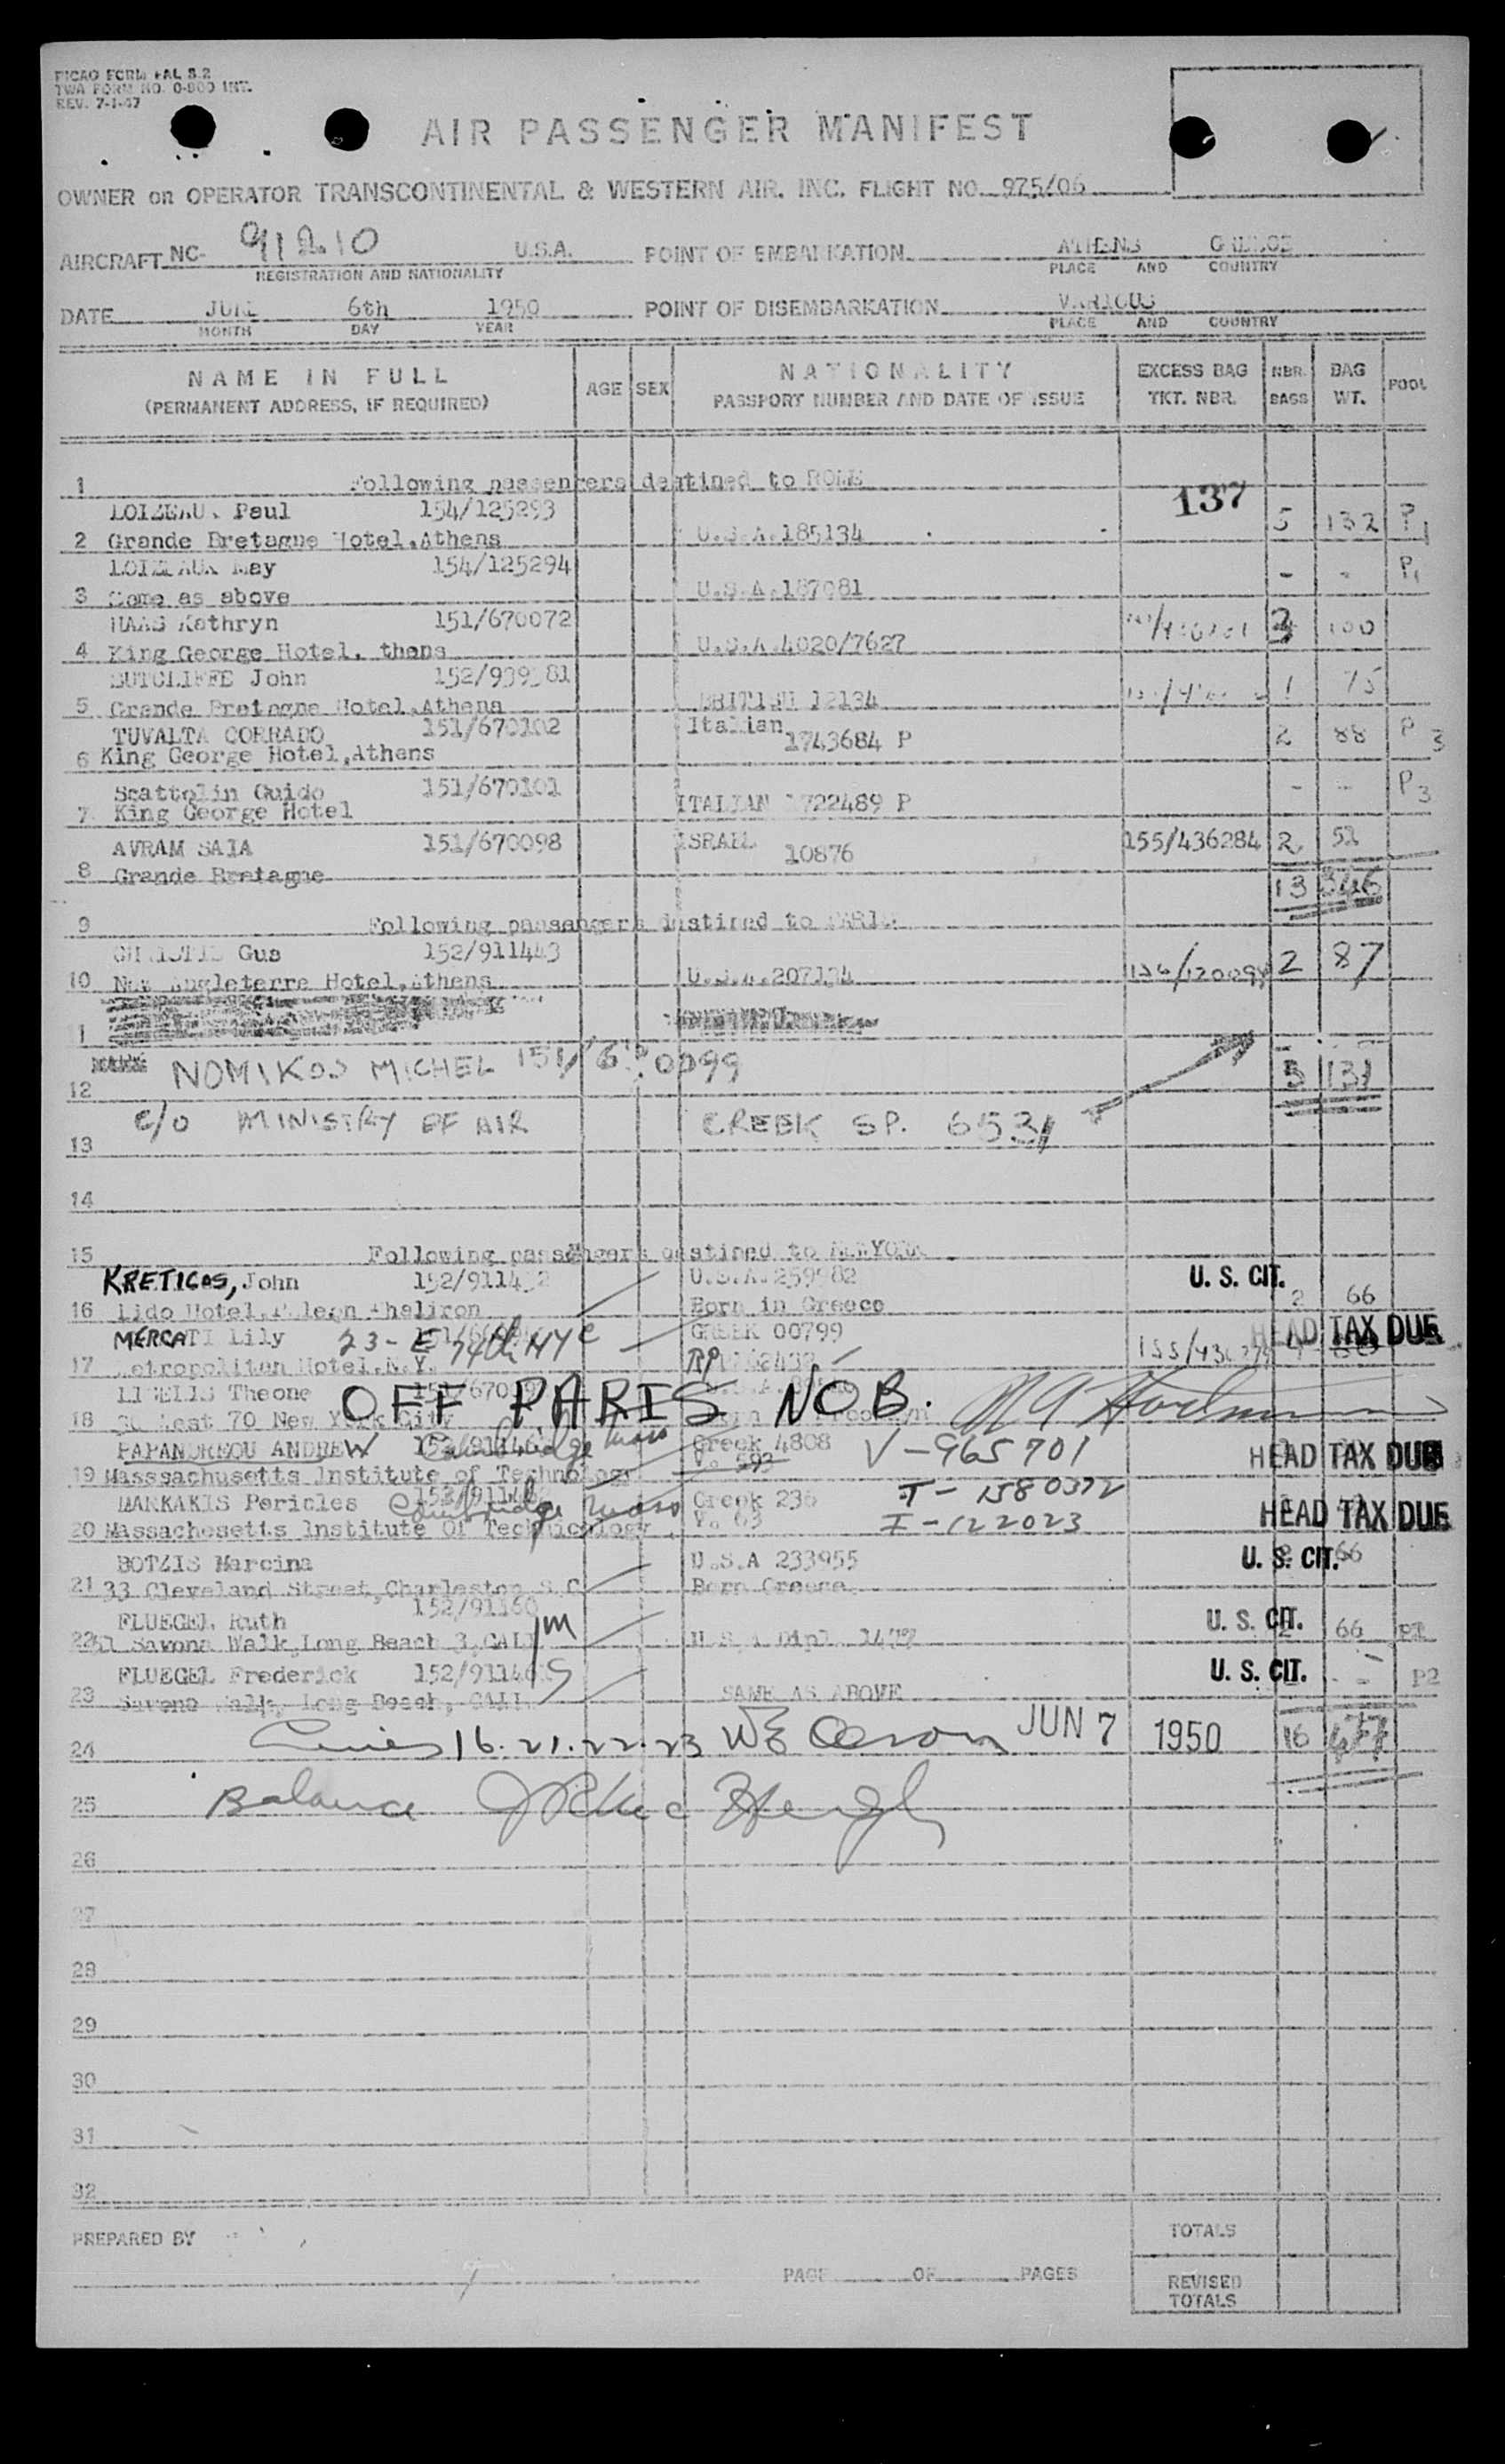 PICAO FORM FAL S.2
TWA FORM NO. 0-800 INT.
REV. 7-1-47
AIR PASSENGER MANIFEST
OWNER OR OPERATOR TRANSCONTINENTAL & WESTERN AIR. INC. FLIGHT NO. 975/06
AIRCRAFT NC- 91210 U.S.A. POINT OF EMBARKATION ATHENS GREECE
REGISTRATION AND NATIONALITY PLACE AND COUNTRY
DATE JUNE 6th 1950 POINT OF DISEMBARKATION VARIOUS
MONTH DAY YEAR PLACE AND COUNTRY
NAME IN FULL AGE SEX NATIONALITY EXCESS BAG NBR. BAG POOL
(PERMANENT ADDRESS, IF REQUIRED) PASSPORT NUMBER AND DATE OF ISSUE TKT. NBR. BAGS WT.
1 Following passengers destined to ROME
137
LOIZEAUX Paul 154/125293
2 Grande Bretagne Hotel,Athens U.S.A.185134 5 132 P1
LOIZEAUX May 154/125294
3 Same as above U.S.A.187081 - - P1
HAAS Kathryn 151/670072
4 King George Hotel, thens U.S.A.4020/7627 3 100
SUTCLIFFE John
5 Grande Bretagne Hotel,Athens BRITISH 12134 1 75
TUVALTA CORRADO 151/670102 Italian
6 King George Hotel,Athens 1743684 P 2 88 P3
Scattolin Guido 151/670101
7 King George Hotel ITALIAN 1722489 P - - P3
AVRAM SAIA 151/670098 ISRAEL 10876 155/436284 2 51
8 Grande Bretagne 13 346
9 Following passengers destined to PARIS
Gus 152/911443
10 New Angleterre Hotel,Athens U.S.A.207134 2 87
1
12 NOMIKOS MICHEL 151/670099 3 131
13 c/o MINISTRY OF AIR GREEK SP. 6531
14
15 Following passengers destined to NEWYORK
KRETICOS, John U.S.A.259982 U. S. CIT.
16 Lido Hotel, Born in Greece 2 66
MERCATI Lily 23-E 74th NYC GREEK 00799 HEAD TAX DUE
17 Metropolitan Hotel,N.Y.
Theone OFF PARIS NOB.
18 West 70 New York City
PAPANDREOU ANDREW Cambridge Mass Greek 4808 V-965701
19 Masssachusetts Institute of Technology V. 593 HEAD TAX DUE
Pericles Cambridge Mass Greek 236 I-1580372
20 Massachosetts Institute Of Technicology V. 63 I-122023 HEAD TAX DUE
BOTZIS Marcina U.S.A 233955 U. S. CIT. 66
21 33 Cleveland Street,Charleston S.C Born Greece.
FLUEGEL Ruth 152/91160 U. S. CIT.
22 51 Savona Walk,Long Beach 3,CALI U.S.A Dipl. 66 P2
FLUEGEL Frederick U. S. CIT.
23 Savona Walk, Long Beach, CALI. SAME AS ABOVE - - P2
24 Lines 16.21.22.23 JUN 7 1950 16 477
25 Balance
26
27
28
29
30
31
32
PREPARED BY TOTALS
PAGE OF PAGES
REVISED
TOTALS